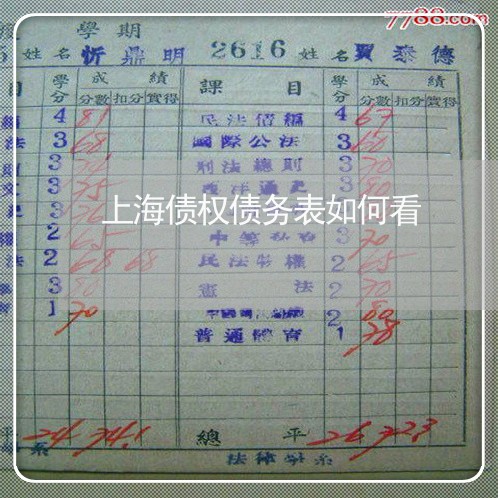 7788.com
度 學期
姓名 忻鼎明 2616 姓名 賈泰德
目 學分 成績 課目 學分 成績
分數 扣分 實得 分數 扣分 實得
4 81 民法債編 4 67
法 3 68 國際公法 3 60
3 刑法總則 3 70
3 75 西洋通史 3 80
3
上海债权债务表如何看
2 65 中等 3 70
法 2 68 68 民法物權 2 65
3 80 憲法 2 70
1 70 2 80
普通體育 1 78
平 24 74.1 總平 26 72.3
系 法律學系